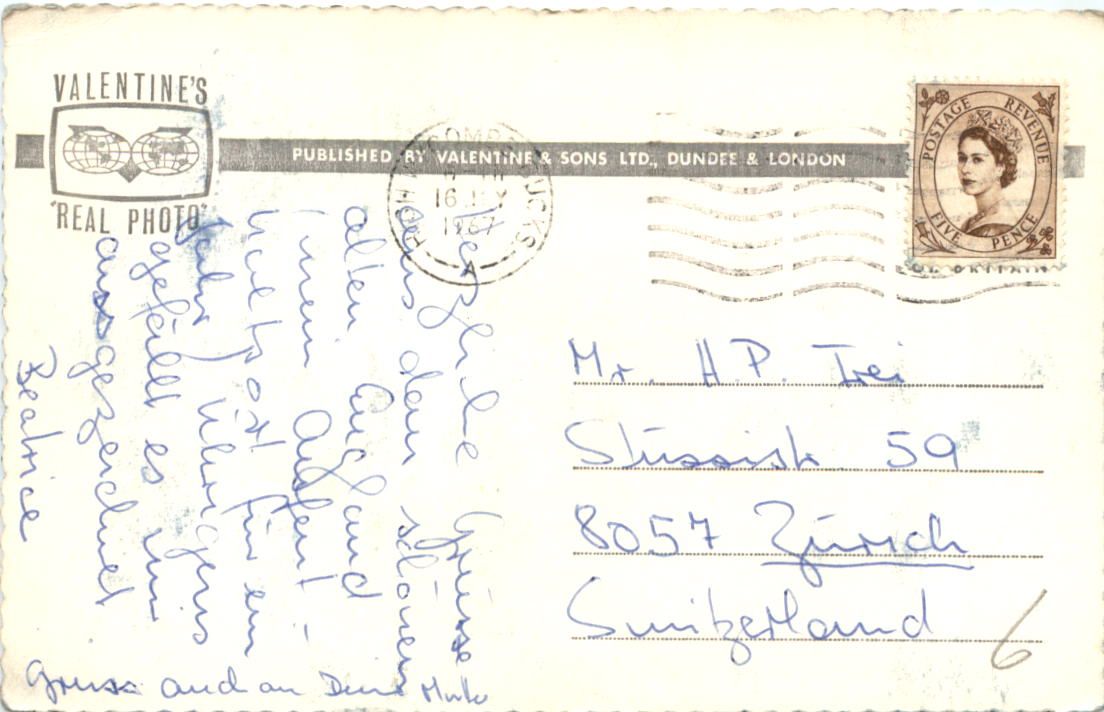 VALENTINE'S
"REAL PHOTO"
PUBLISHED BY VALENTINE & SONS LTD., DUNDEE & LONDON
BUCKS.
1967
A
POSTAGE REVENUE
FIVE PENCE
Herzliche Grüsse
aus dem schönen
alten England
mein
viel Post für ein
Jahr! Übrigens
gefällt es mir
ausgezeichnet
Beatrice
Gruss auch an Deine
Mr. H.P. Frei
Stüssistr. 59
8057 Zürich
Switzerland
6